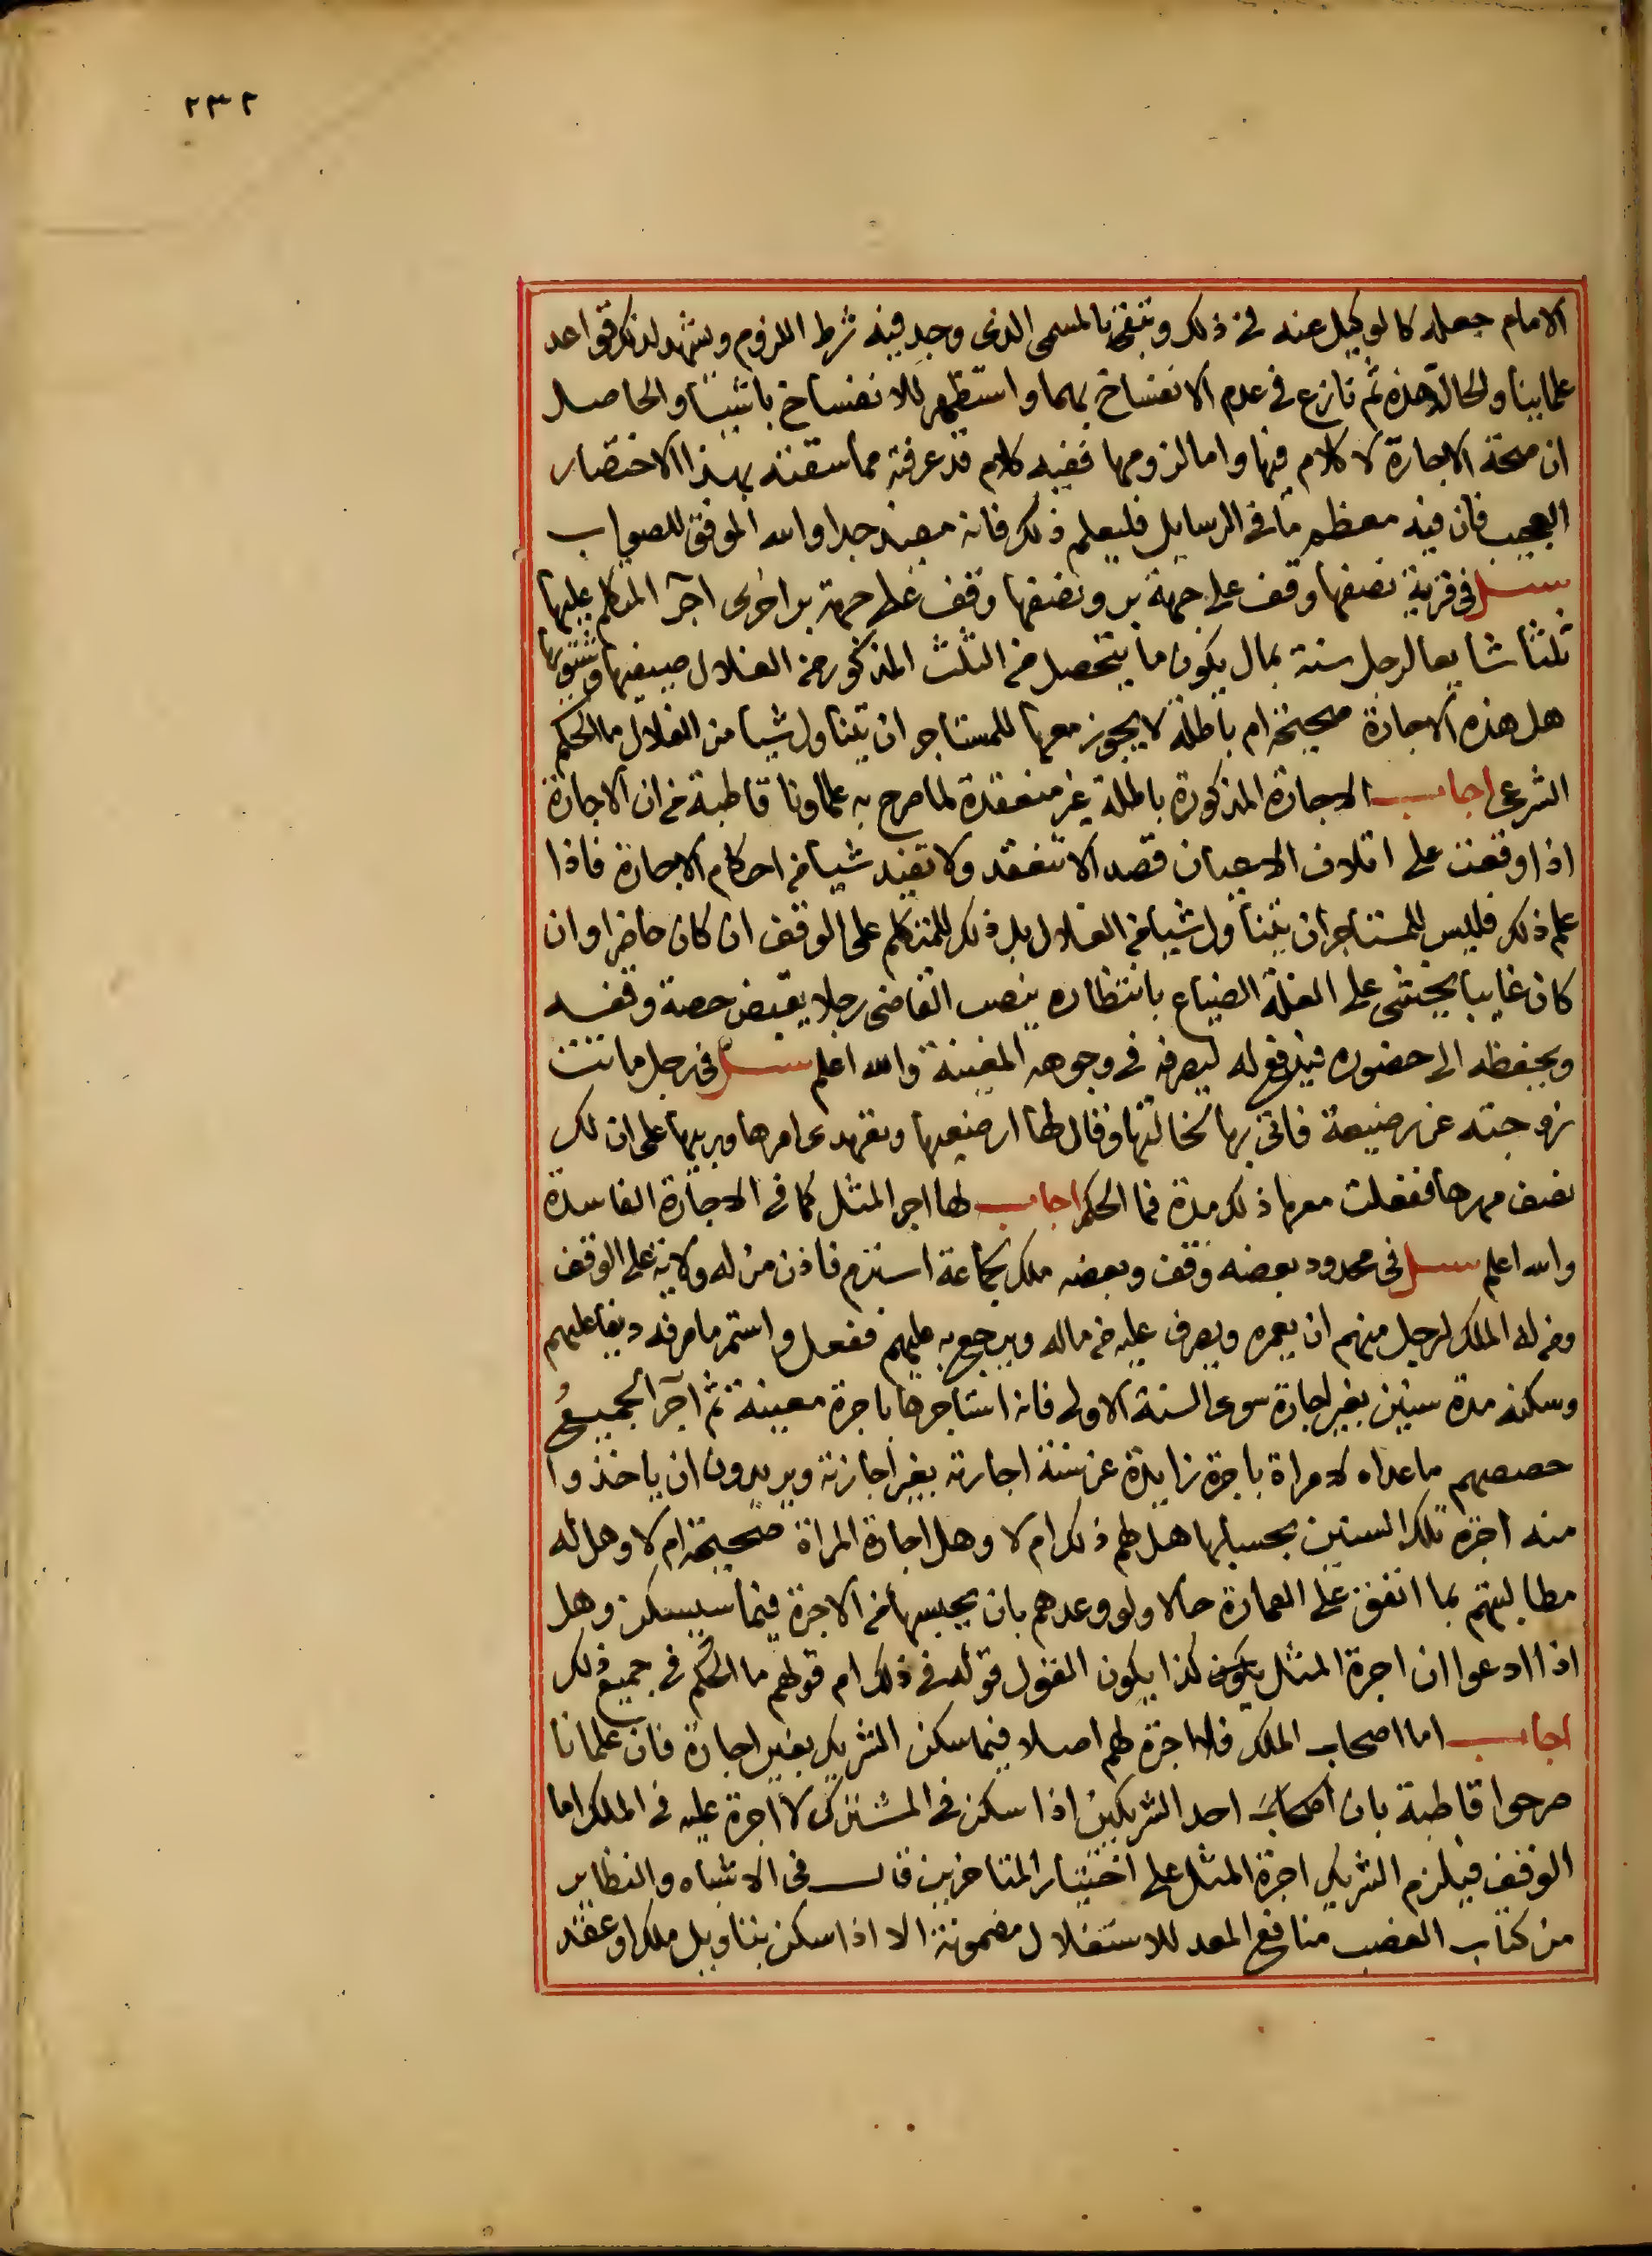 ٢٣٢
الامام جعله كالوكيل عنه فى ذلك وتبقى بالمسمى الذى وجد فيه شرط اللزوم ويشهد لذلك قواعد
علماينا والحالة هذه ثم نازع فى عدم الانفساخ بهما واستظهر للانفساخ باشيا والحاصل
ان صحة الاجارة لا كلام فيها واما لزومها ففيه كلام قد عرفته مما سقته بهذا الاختصار
العجيب فان فيه معظم ما فى الرسايل فليعلم ذلك فانه مفيد جدا والله الموفق للصواب
سئل فى قرية نصفها وقف على جهة بر ونصفها وقف على جهة بر اخرى اجر المتكلم عليها
ثلثا شايعا لرجل سنة بمال يكون ما يتحصل من الثلث المذكور من الغلال صيفيها وشتويها
هل هذه الاجارة صحيحة ام باطلة لا يجوز معها للمستاجر ان يتناول شيا من الغلال ما الحكم
الشرعى اجاب الاجارة المذكورة باطلة غير منعقدة لما صرح به علماونا قاطبة من ان الاجارة
اذا وقعت على اتلاف الاعيان قصدا لا تنعقد ولا تفيد شيا من احكام الاجارة فاذا
علم ذلك فليس للمستاجر ان يتناول شيا من الغلال بل ذلك للمتكلم على الوقف ان كان حاضرا وان
كان غايبا يخشى على الغلة الضياع بانتظاره ينصب القاضى رجلا يقبض حصة وقفه
ويحفظه الى حضوره فيدفع له ليصرفه فى وجوهه المعينة والله اعلم سئل فى رجل ماتت
زوجته عن رضيعة فاتى بها لخالتها وقال لها ارضعيها وتعهدى امرها وربيها على ان لك
نصف مهرها ففعلت معها ذلك مدة فما الحكم اجاب لها اجر المثل كما فى الاجارة الفاسدة
والله اعلم سئل فى محدود بعضه وقف وبعضه ملك لجماعة استرم فاذن من له ولاية على الوقف
ومن له الملك لرجل منهم ان يعمره ويصرف عليه من ماله ويرجع به عليهم ففعل واستمر ما صرفه دينا عليهم
وسكنه مدة سنين بغير اجارة سوى السنة الاولى فانه استاجرها باجرة معينة ثم آجر الجميع
حصصهم ما عداه لامراة باجرة زايدة عن سنة اجارته بغير اجازته ويريدون ان ياخذوا
منه اجرة تلك السنين بحسابها هل لهم ذلك ام لا وهل اجارة المراة صحيحة ام لا وهل له
مطالبتهم بما انفق على العمارة حالا ولو وعدهم بان يحبسها من الاجرة فيما سيسكن وهل
اذا ادعوا ان اجرة المثل يكون كذا يكون القول قوله فى ذلك ام قولهم ما الحكم فى جميع ذلك
اجاب اما اصحاب الملك فلا اجرة لهم اصلا فيما سكن الشريك بغير اجارة فان علمانا
صرحوا قاطبة بان احد الشريكين اذا سكن فى المشترك لا اجرة عليه فى الملك اما
الوقف فيلزم الشريك اجرة المثل على اختيار المتاخرين قال فى الاشباه والنظاير
من كتاب الغصب منافع المعد للاستغلال مضمونة الا اذا سكن بتاويل ملك او عقد